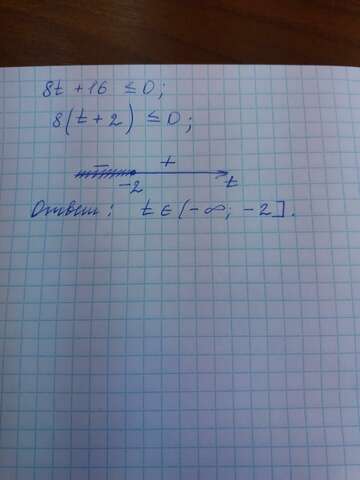 8t + 16 ≤ 0;
8(t + 2) ≤ 0;
− +
-2 t
Ответ: t ∈ (-∞; -2].